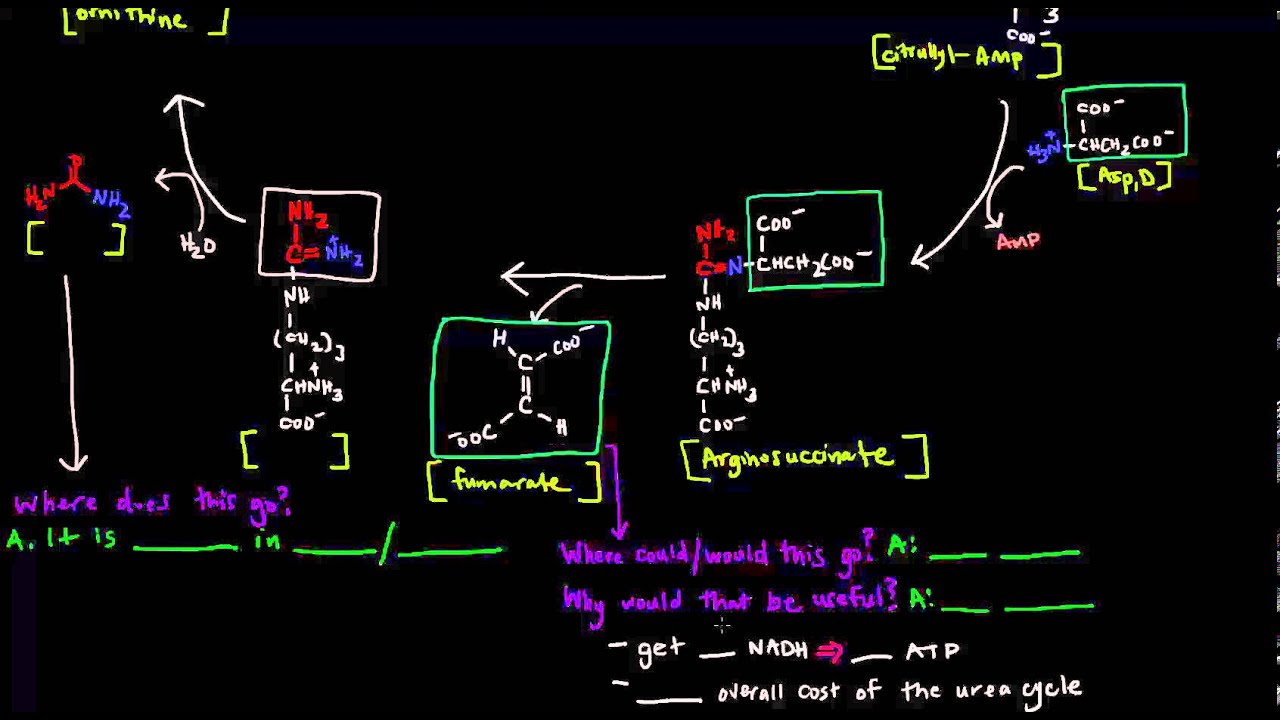 [ornithine]
COO⁻
[citrullyl-AMP]
COO⁻
H₃N⁺-CHCH₂COO⁻
[Asp,D]
AMP
H₂N NH₂
[ ]
H₂O
NH₂
C=NH₂⁺
NH
(CH₂)₃
CHNH₃⁺
COO⁻
[ ]
H COO⁻
C
C
⁻OOC H
[fumarate]
COO⁻
NH₂
C=N-CHCH₂COO⁻
NH
(CH₂)₃
CHNH₃⁺
COO⁻
[Arginosuccinate]
Where does this go?
A. It is ____ in ____/____
Where could/would this go? A: ____ ____
Why would that be useful? A: ____ ____
- get __ NADH ⇒ __ ATP
- ____ overall cost of the urea cycle